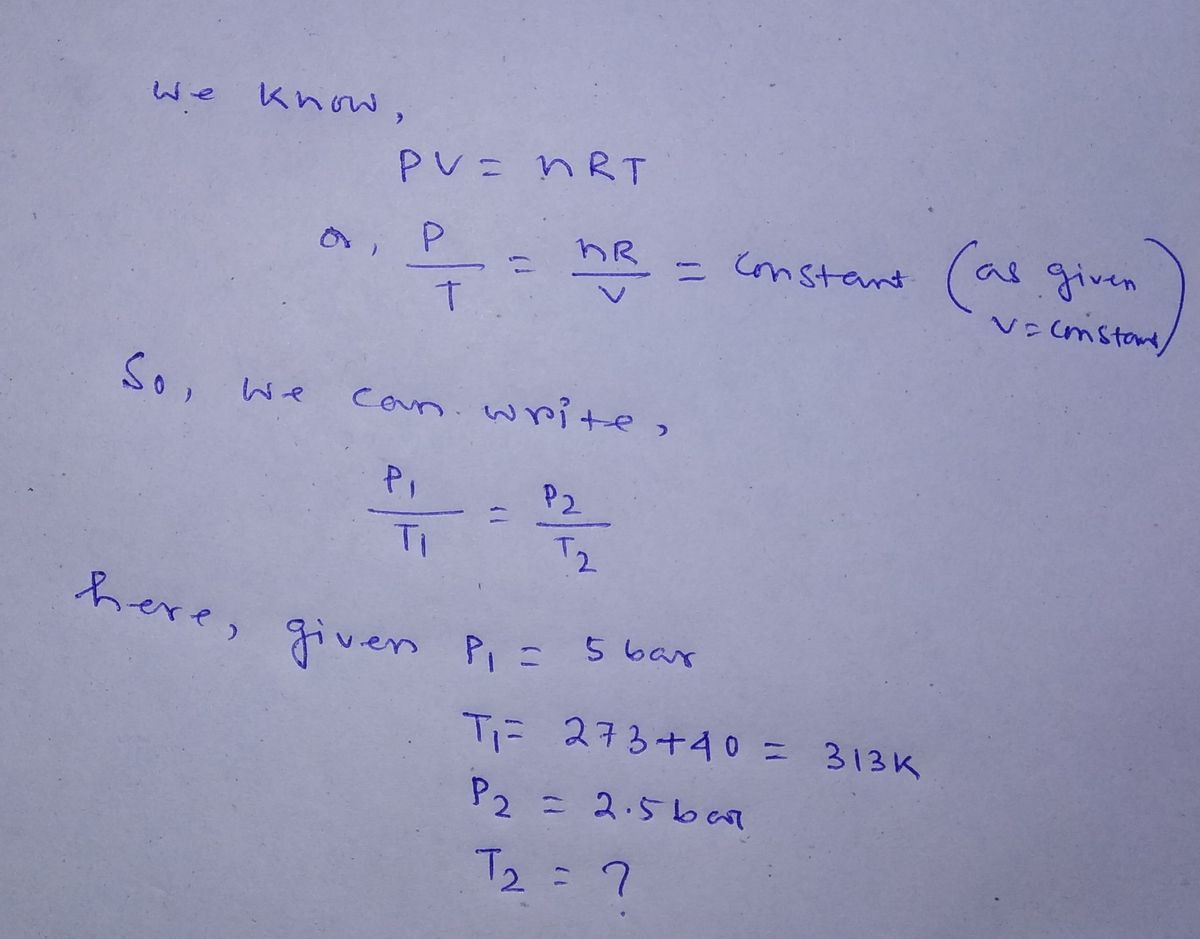 We know,
PV = nRT
or, P/T = nR/V = Constant (as given V = constant)
So, we can write,
P₁/T₁ = P₂/T₂
here, given P₁ = 5 bar
T₁ = 273+40 = 313K
P₂ = 2.5 bar
T₂ = ?